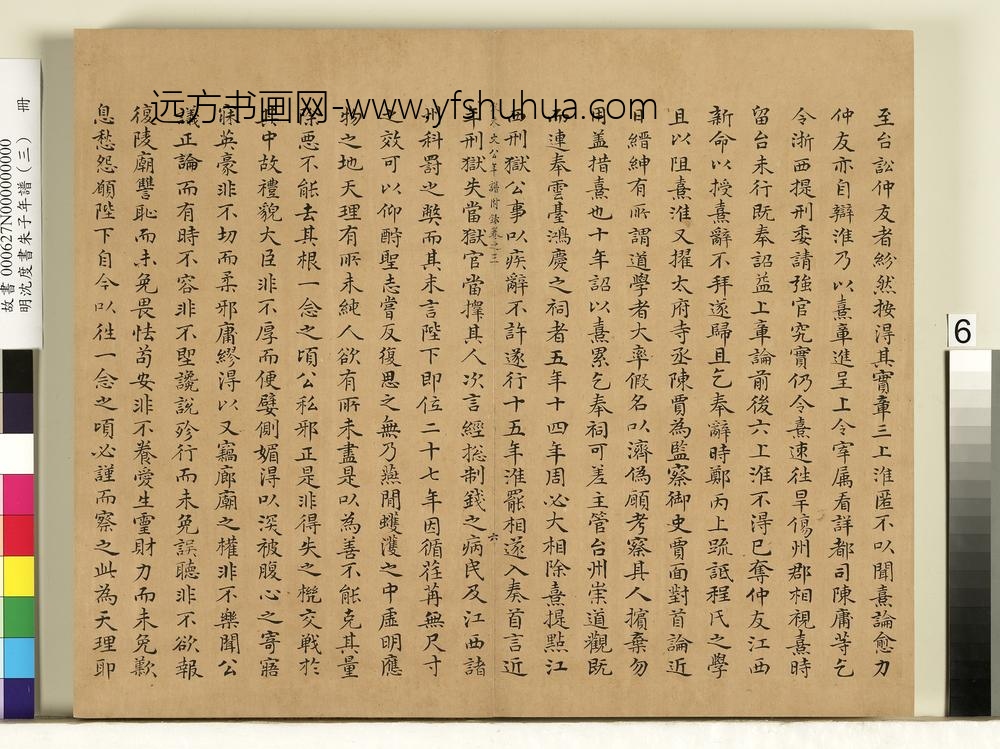 远方书画网-www.yfshuhua.com
至台訟仲友者紛然按得其實章三上淮匿不以聞熹論愈力
仲友亦自辯淮乃以熹章進呈上令宰属看詳都司陳庸等乞
令浙西提刑委請強官究實仍令熹速徃旱傷州郡相視熹時
留台未行既奉詔益上章論前後六上淮不得已奪仲友江西
新命以授熹辭不拜遂歸且乞奉辭時鄭丙上疏詆程氏之學
且以阻熹淮又擢太府寺丞陳賈為監察御史賈面對首論近
日縉紳有所謂道學者大率假名以濟偽願考察其人擯棄勿
用盖措熹也十年詔以熹累乞奉祠可差主管台州崇道觀既
而連奉雲臺鴻慶之祠者五年十四年周必大相除熹提點江
西刑獄公事以疾辭不許遂行十五年淮罷相遂入奏首言近
文公年譜附錄卷之三
六
年刑獄失當獄官當擇其人次言經総制錢之病民及江西諸
州科罰之獘而其末言陛下即位二十七年因循荏苒無尺寸
之效可以仰酧聖志嘗反復思之無乃燕閒蠖濩之中虛明應
物之地天理有所未純人欲有所未盡是以為善不能克其量
除惡不能去其根一念之頃公私邪正是非得失之機交戰於
其中故禮貌大臣非不厚而便嬖側媚得以深被腹心之寄寤
寐英豪非不切而柔邪庸繆得以又竊廊廟之權非不樂聞公
議正論而有時不容非不堲讒說殄行而未免誤聽非不欲報
復陵廟讐恥而未免畏怯苟安非不養愛生靈財力而未免歎
息愁怨願陛下自今以徃一念之頃必謹而察之此為天理耶
冊
故書 000627N000000000
明沈度書朱子年譜(三)
6